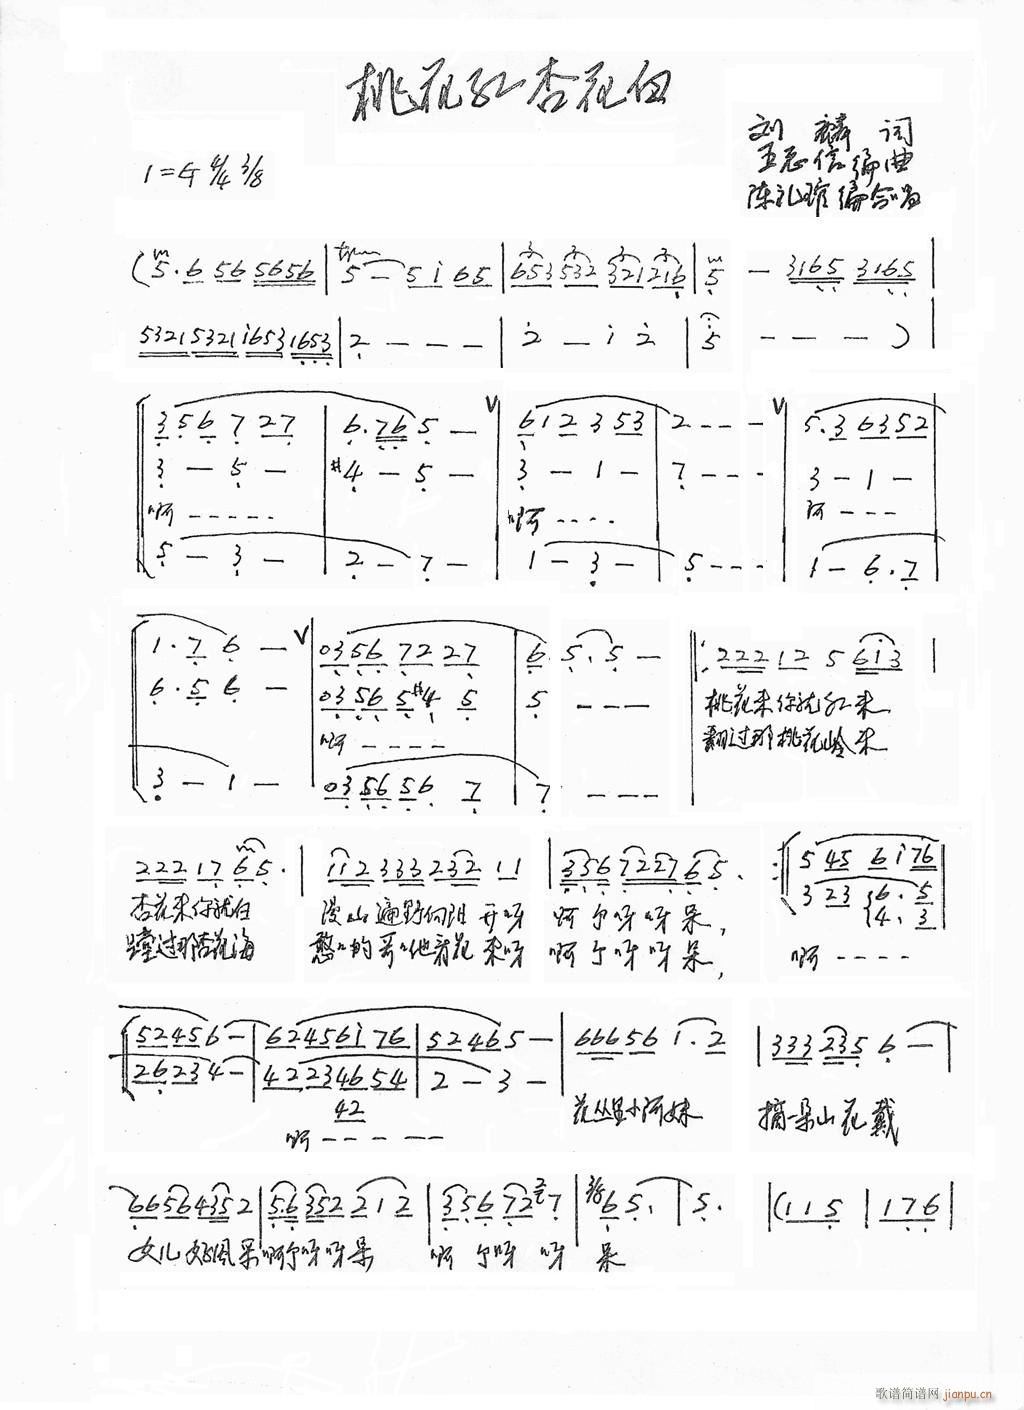 桃花红杏花白
刘麟词
王志信编曲
陈礼瑄编合唱
1= 4/4 3/8
(5·6 56 5656 | 5 - 5 i 65 | 653 532 321 216 | 5 - 3165 3165 |
5321 5321 i653 1653 | 2 - - - - | 2 - i 2 | 5 - - - ) |
3 5 6 7 27 | 6·76 5 - V | 6 1 2 3 53 | 2 - - - V | 5·3 6352
3 - 5 - | #4 - 5 - | 3 - 1 - | 7 - - - | 3 - 1 -
啊 - - - - - 啊 - - - - 啊 - - -
5 - 3 - | 2 - 7 - | 1 - 3 - | 5 - - - | 1 - 6·7
1·7 6 - V | 0356 72 27 | 6 5·5 - | : 222 12 5 6i3 |
6·5 6 - | 0356 5#4 5 | 5 - - - | 桃花来你就红来
啊 - - - - 翻过那桃花岭来
3 - 1 - | 0356 56 7 | 7 - - -
222 17 65· | 112 333 232 11 | 3356 7227 65· :| 5 45 6i76
3 23 6·5
4·3
杏花来你就白 漫山遍野向阳开呀 啊个呀呀呆,
蹚过那杏花海 憨憨的哥哥他看花来呀 啊个呀呀呆, 啊 - - - -
52456 - | 62456i76 | 52465 - | 66656 i·2 | 333 235 6 - |
26234 - | 42234654 | 2 - 3 -
42
花丛里小阿妹 摘一朵山花戴
啊 - - - - -
66564352 | 5·6 352 212 | 3 56 72 7 | 3/8 65· | 5· |(115 | 176 |
女儿好风采啊个呀呀呆 啊个呀呀 呆
歌谱简谱网 jianpu.cn